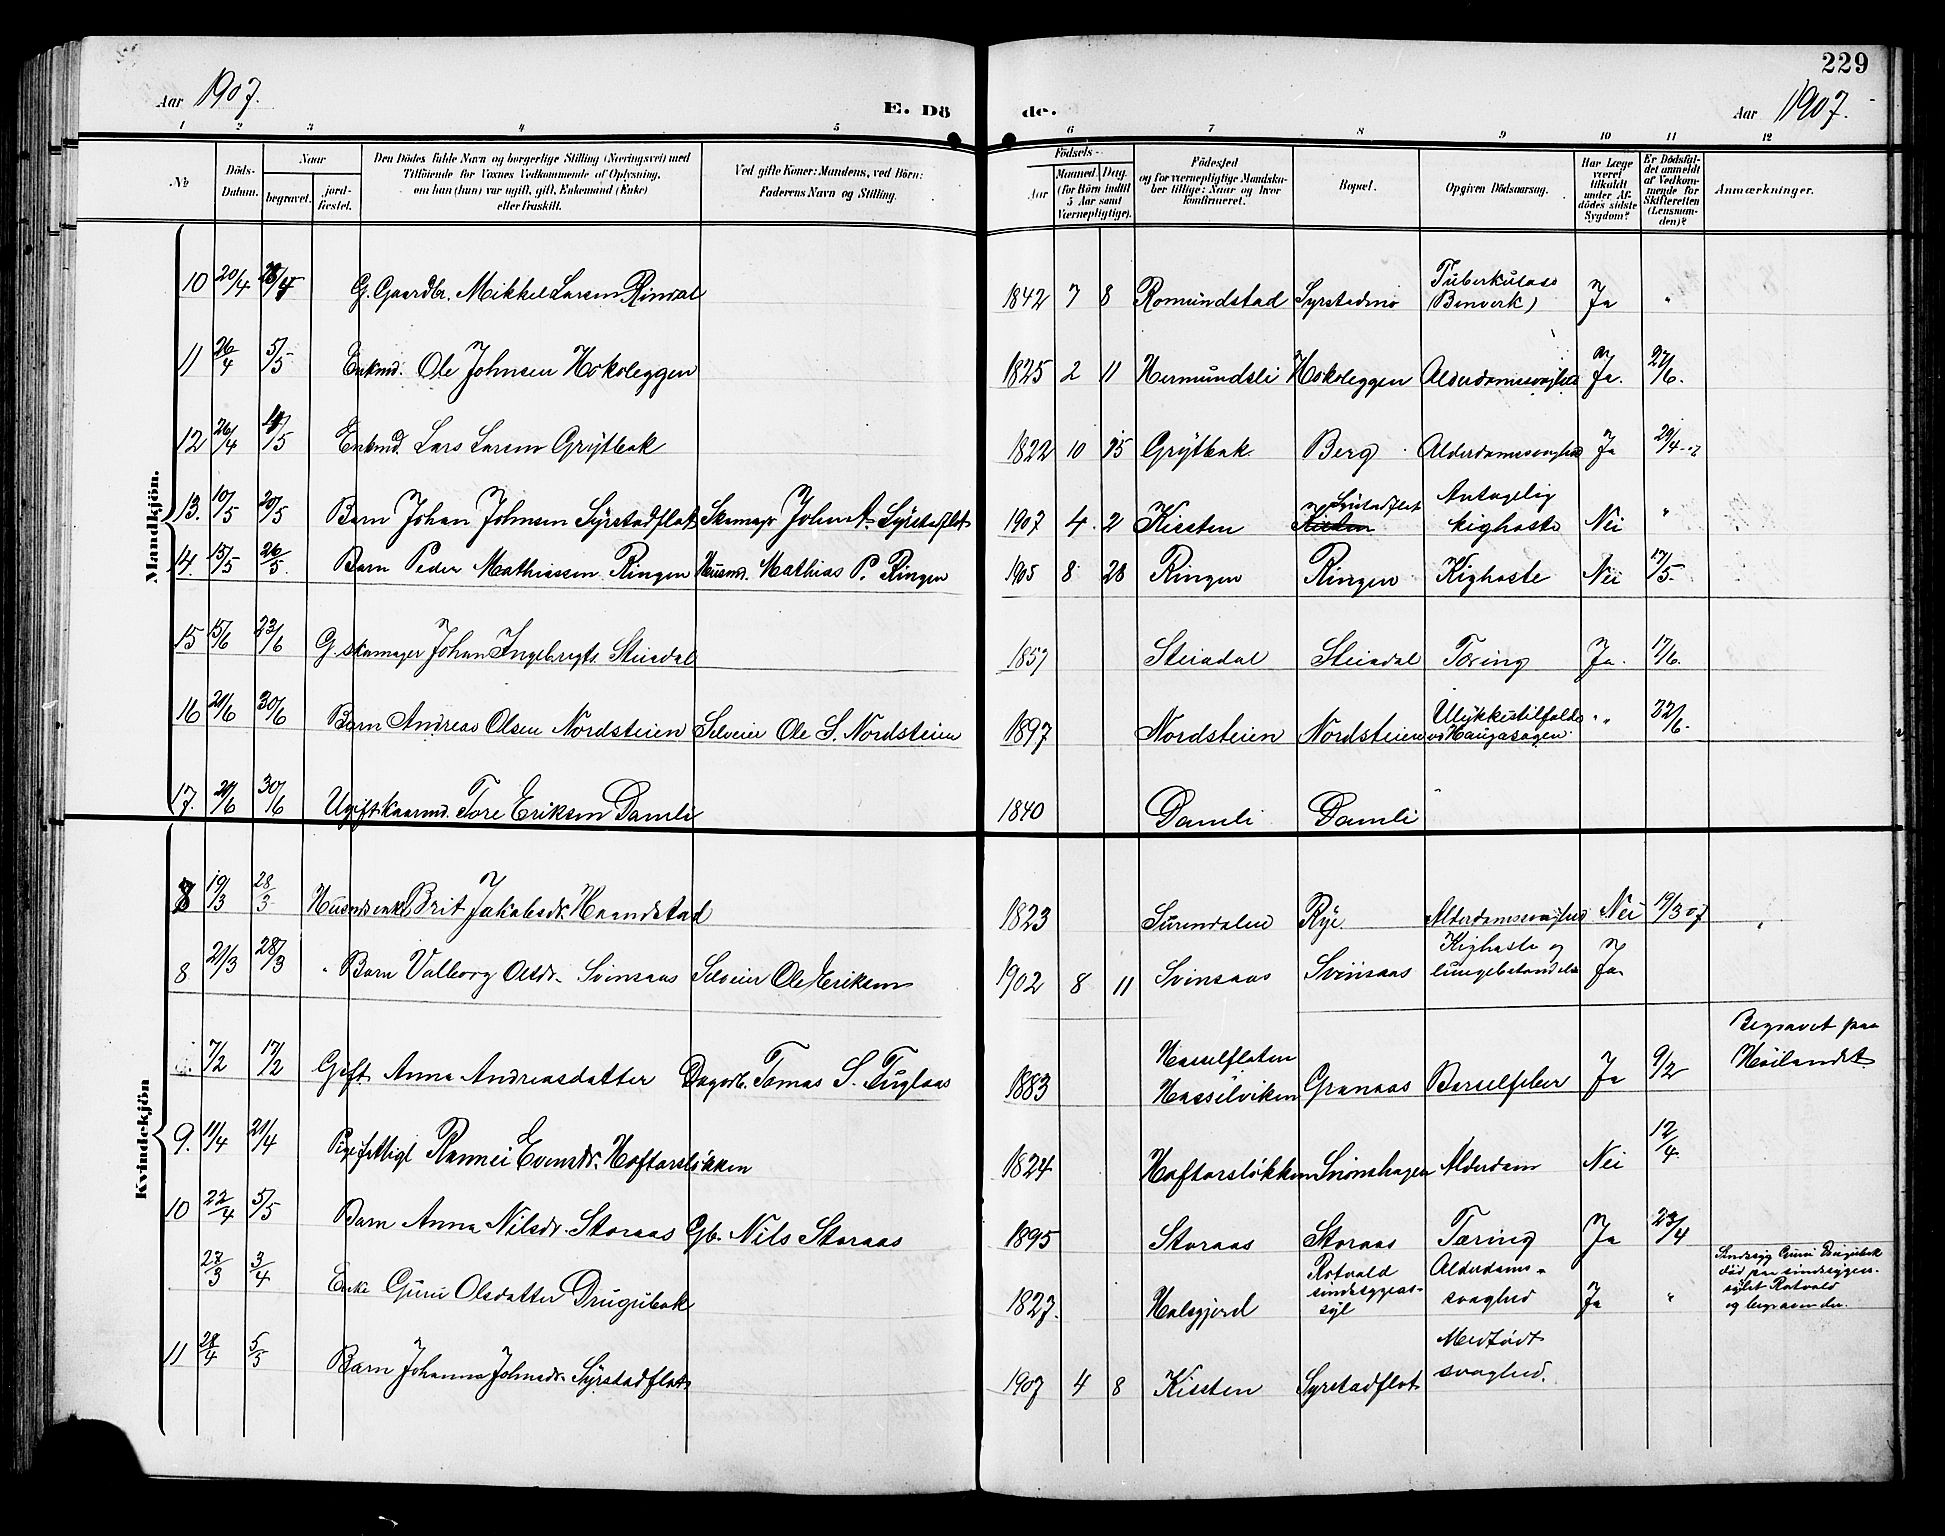 229
Aar 1907.
E. Dö
de.
Aar 1907.
1 2 3 4 5 6 7 8 9 10 11 12
No
Döds-Datum.
Naar
begravet.
jord-fæstet.
Den Dödes fulde Navn og borgerlige Stilling (Næringsvei) med
Tilföiende for Voxnes Vedkommende af Oplysning,
om han (hun) var ugift, gift, Enkemand (Enke)
eller fraskilt.
Ved gifte Koner: Mandens, ved Börn:
Faderens Navn og Stilling.
Födsels-
Aar
Maaned. Dag.
(for Börn indtil
5 Aar samt
Værnepligtige).
Födested
og for værnepligtige Mandska-
ber tillige: Naar og hvor
konfirmeret.
Bopæl.
Opgiven Dödsaarsag.
Har Læge
været
tilkaldt
under Af-
dödes sidste
Sygdom?
Er Dödsfal-
det anmeldt
af Vedkom-
mende for
Skifteretten
(Lensman-
den)?
Anmærkninger.
Mandkjön.
10 20/4 28/4 G. Gaardbr. Mikkel Larsen Rindal 1842 7 8 Romundstad Syrstadmo Tuberkulose (Benverk) Ja "
11 26/4 5/5 Enkmd. Ole Johnsen Hokoleggen 1825 2 11 Hermundsli Hokoleggen Alderdomssvaghed Ja. 27/6.
12 26/4 4/5 Enkmd. Lars Larsen Grytbak 1822 10 15 Grytbak Berg Alderdomssvaghed Ja 29/4-07
13. 10/5 20/5 Barn Johan Johnsen Syrstadflot Skomager John A. Syrstadflot 1907 4. 2 Kissten Syrstadflot Antagelig kighoste Nei "
14. 15/5 26/5. Barn Peder Mathiassen Ringen Husmd. Mathias P. Ringen 1905 8 28 Ringen Ringen Kighoste Nei 17/5-
15 15/6 23/6 G. skomager Johan Ingebrigts. Steindal 1857 Steindal Steindal Tæring Ja. 17/6.
16 20/6 30/6 Barn Andreas Olsen Nordsteien Selveier Ole S. Nordsteien 1897 Nordsteien Nordsteien Ulykkestilfælde ved Haugasagen. " 22/6.
17. 21/6 30/6 Ugift kaarmd. Tore Eriksen Damli 1840 Damli Damli "
Kvindekjön
7 19/3 28/3 Husmdsenke Brit Jakobsdr. Haandstad 1823 Surendalen Rye Alderdomssvaghed Nei 19/3 07 "
8 21/3 28/3 " Barn Valborg Olsdr. Svinsaas Selveier Ole Eriksen 1902 8 11 Svinsaas Svinsaas Kighoste og lungebetændelse Ja
7/2 17/2 Gift Anna Andreasdatter Dagarb. Tomas S. Fuglaas 1883 Hasselfloten Hasselviken Granaas Barselfeber Ja 9/2 Begravet paa Høilandet
9. 11/4 21/4 Pige fattigl Rannei Evensdr. Hoftarsløkken 1824 Hoftarsløkken Svinshagen Alderdom Nei 12/4.
10 22/4 5/5 Barn Anna Nilsdr. Storaas Gb. Nils Storaas 1895 Storaas Storaas Tæring Ja 23/4
27/3 3/4 Enke Guru Olsdatter Drugubak 1827. Halsgjerd Rotvold sindssygeas- syl Alderdoms- svaghed Ja " Sindssyg Guru Drugubak død paa sindssygeas- sylet Rotvold og begraven der.
11 28/4 5/5 Barn Johanna Johnsdr. Syrstadflot 1907 4 8 Kissten Syrstadflot Medfødt svaghed.